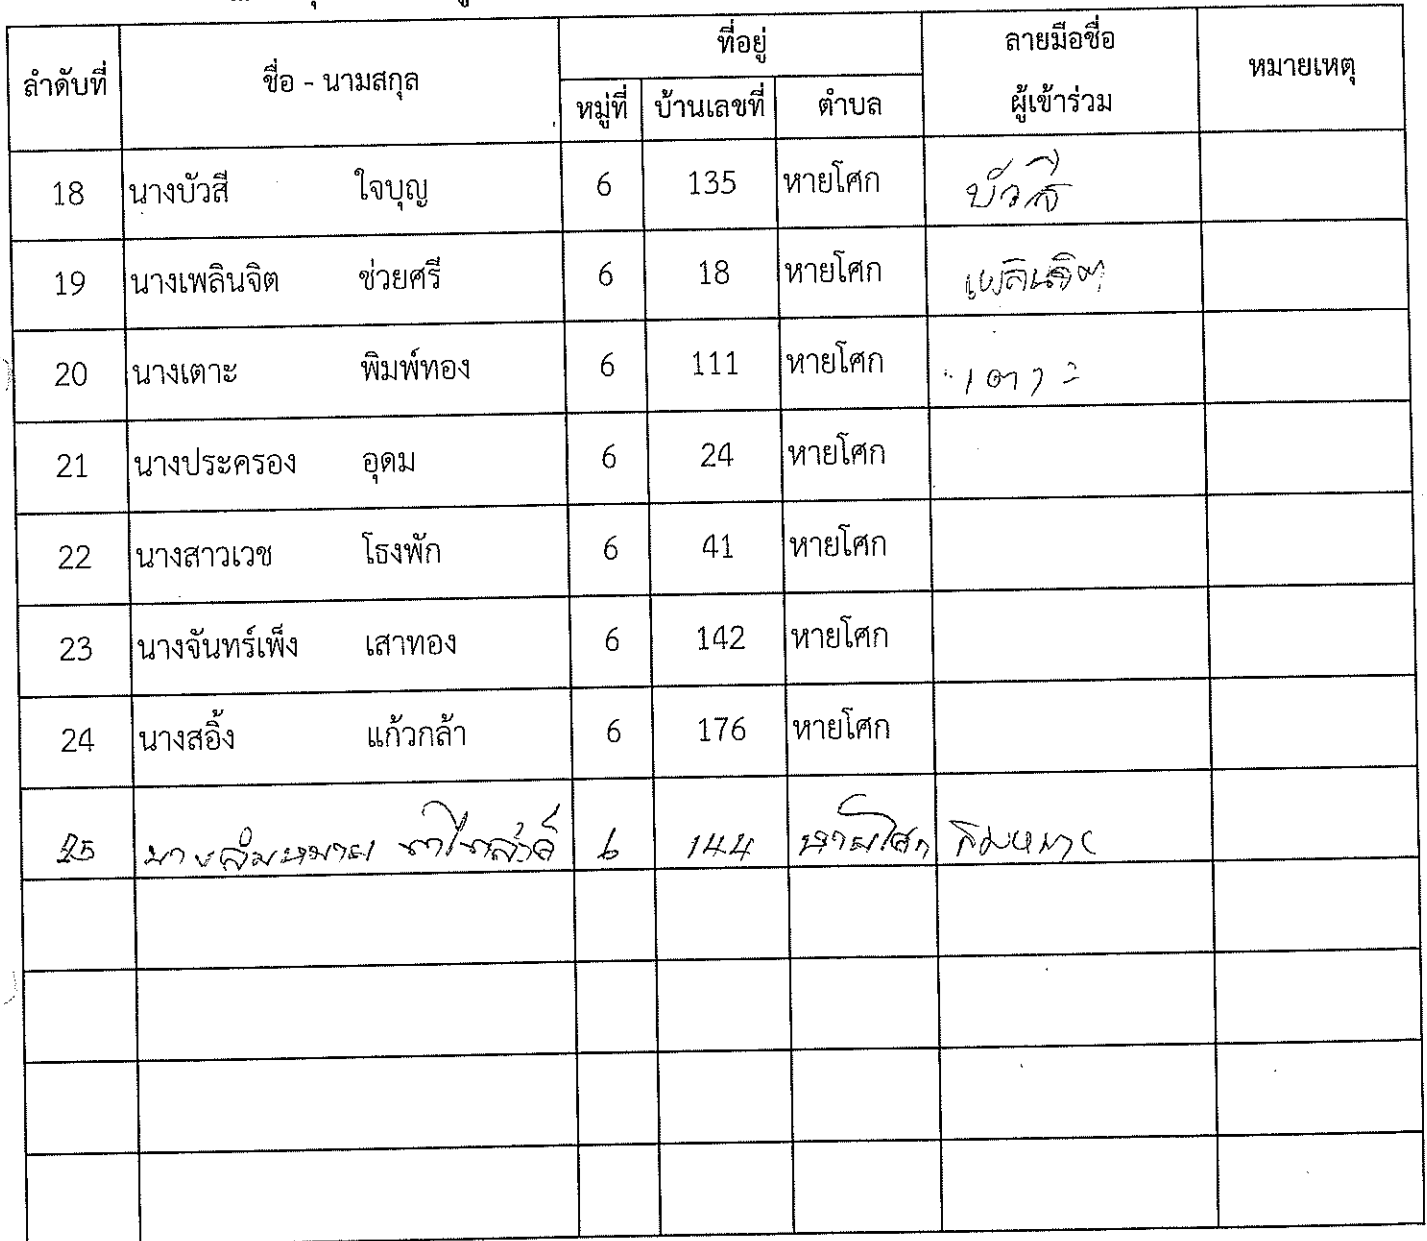 ที่อยู่ ลายมือชื่อ
ลำดับที่ ชื่อ - นามสกุล หมายเหตุ
หมู่ที่ บ้านเลขที่ ตำบล ผู้เข้าร่วม
18 นางบัวสี ใจบุญ 6 135 หายโศก บัวสี
19 นางเพลินจิต ช่วยศรี 6 18 หายโศก เพลินจิต
20 นางเตาะ พิมพ์ทอง 6 111 หายโศก เตาะ
21 นางประครอง อุดม 6 24 หายโศก
22 นางสาวเวช โธงพัก 6 41 หายโศก
23 นางจันทร์เพ็ง เสาทอง 6 142 หายโศก
24 นางสอิ้ง แก้วกล้า 6 176 หายโศก
25 นางสมหมาย 6 144 หายโศก สมหมาย